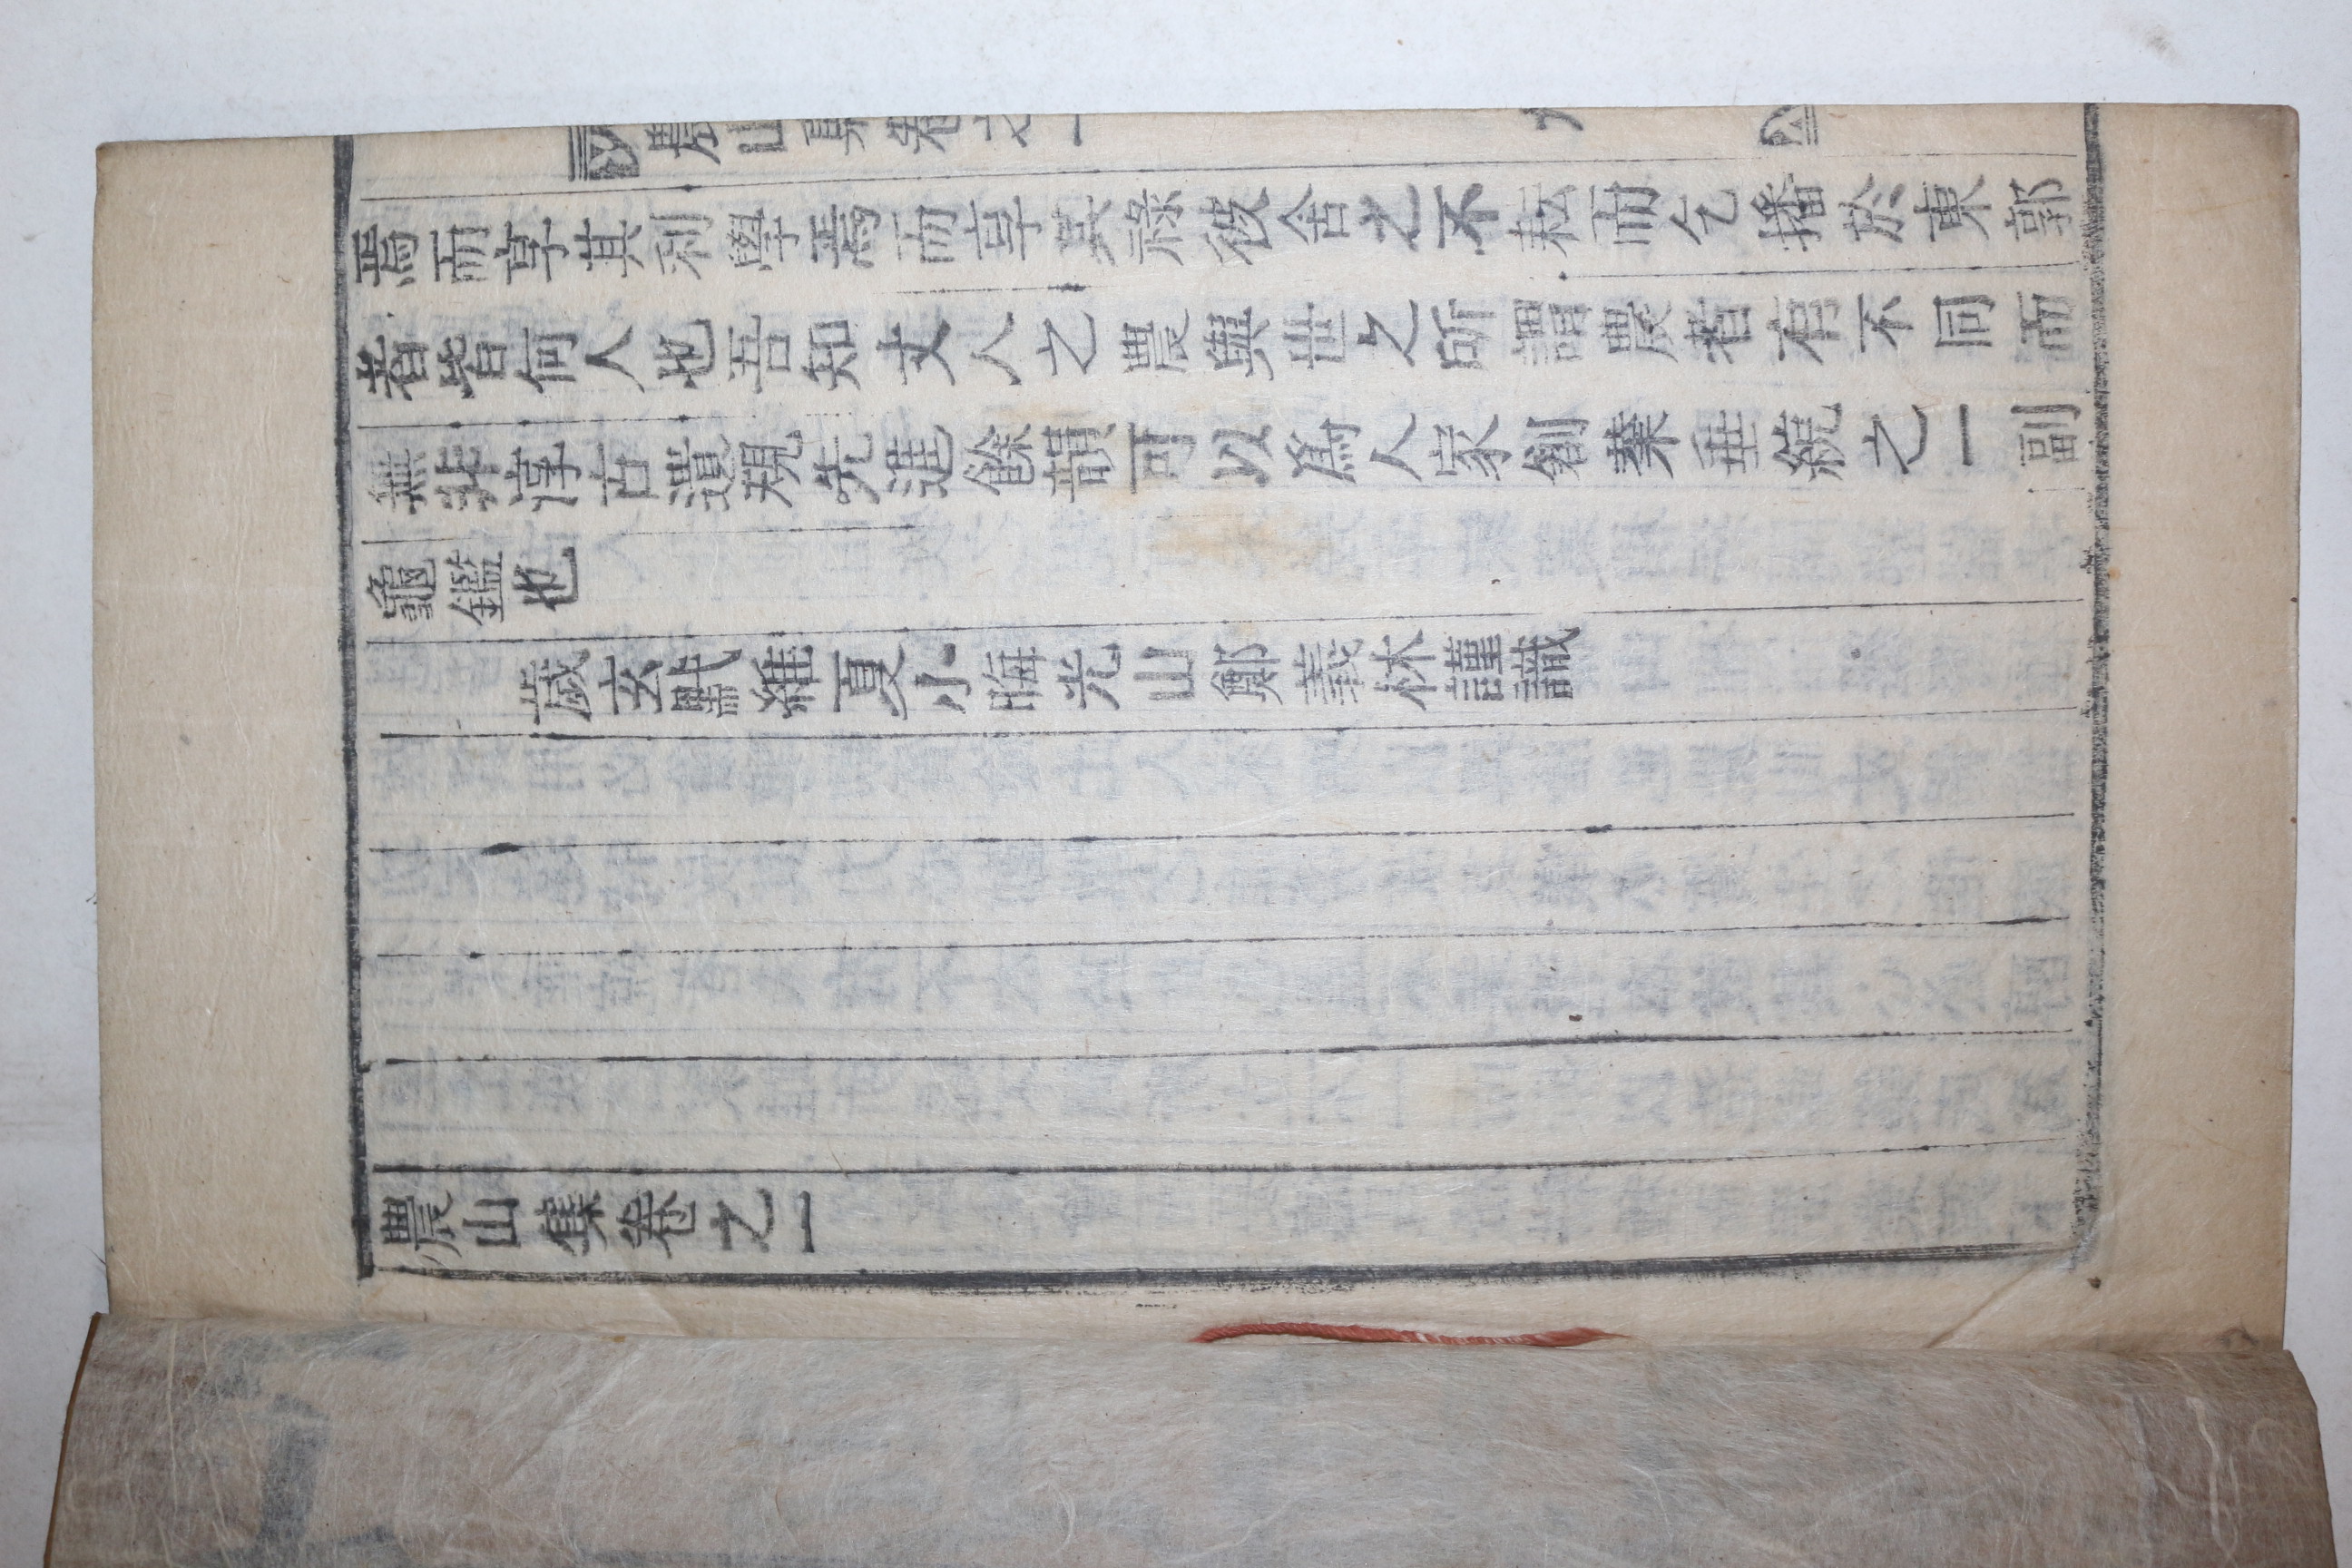 農山集卷之一
焉而享其利學焉而享其祿彼舍之不耘而乞播於東郭
者皆何人也吾知丈人之農與世之所謂農者有不同而
無非淳古遺規先進餘韻可以爲人家創業垂統之一副
龜鑑也
歲玄黓維夏小晦光山鄭義林謹識
農山集卷之一